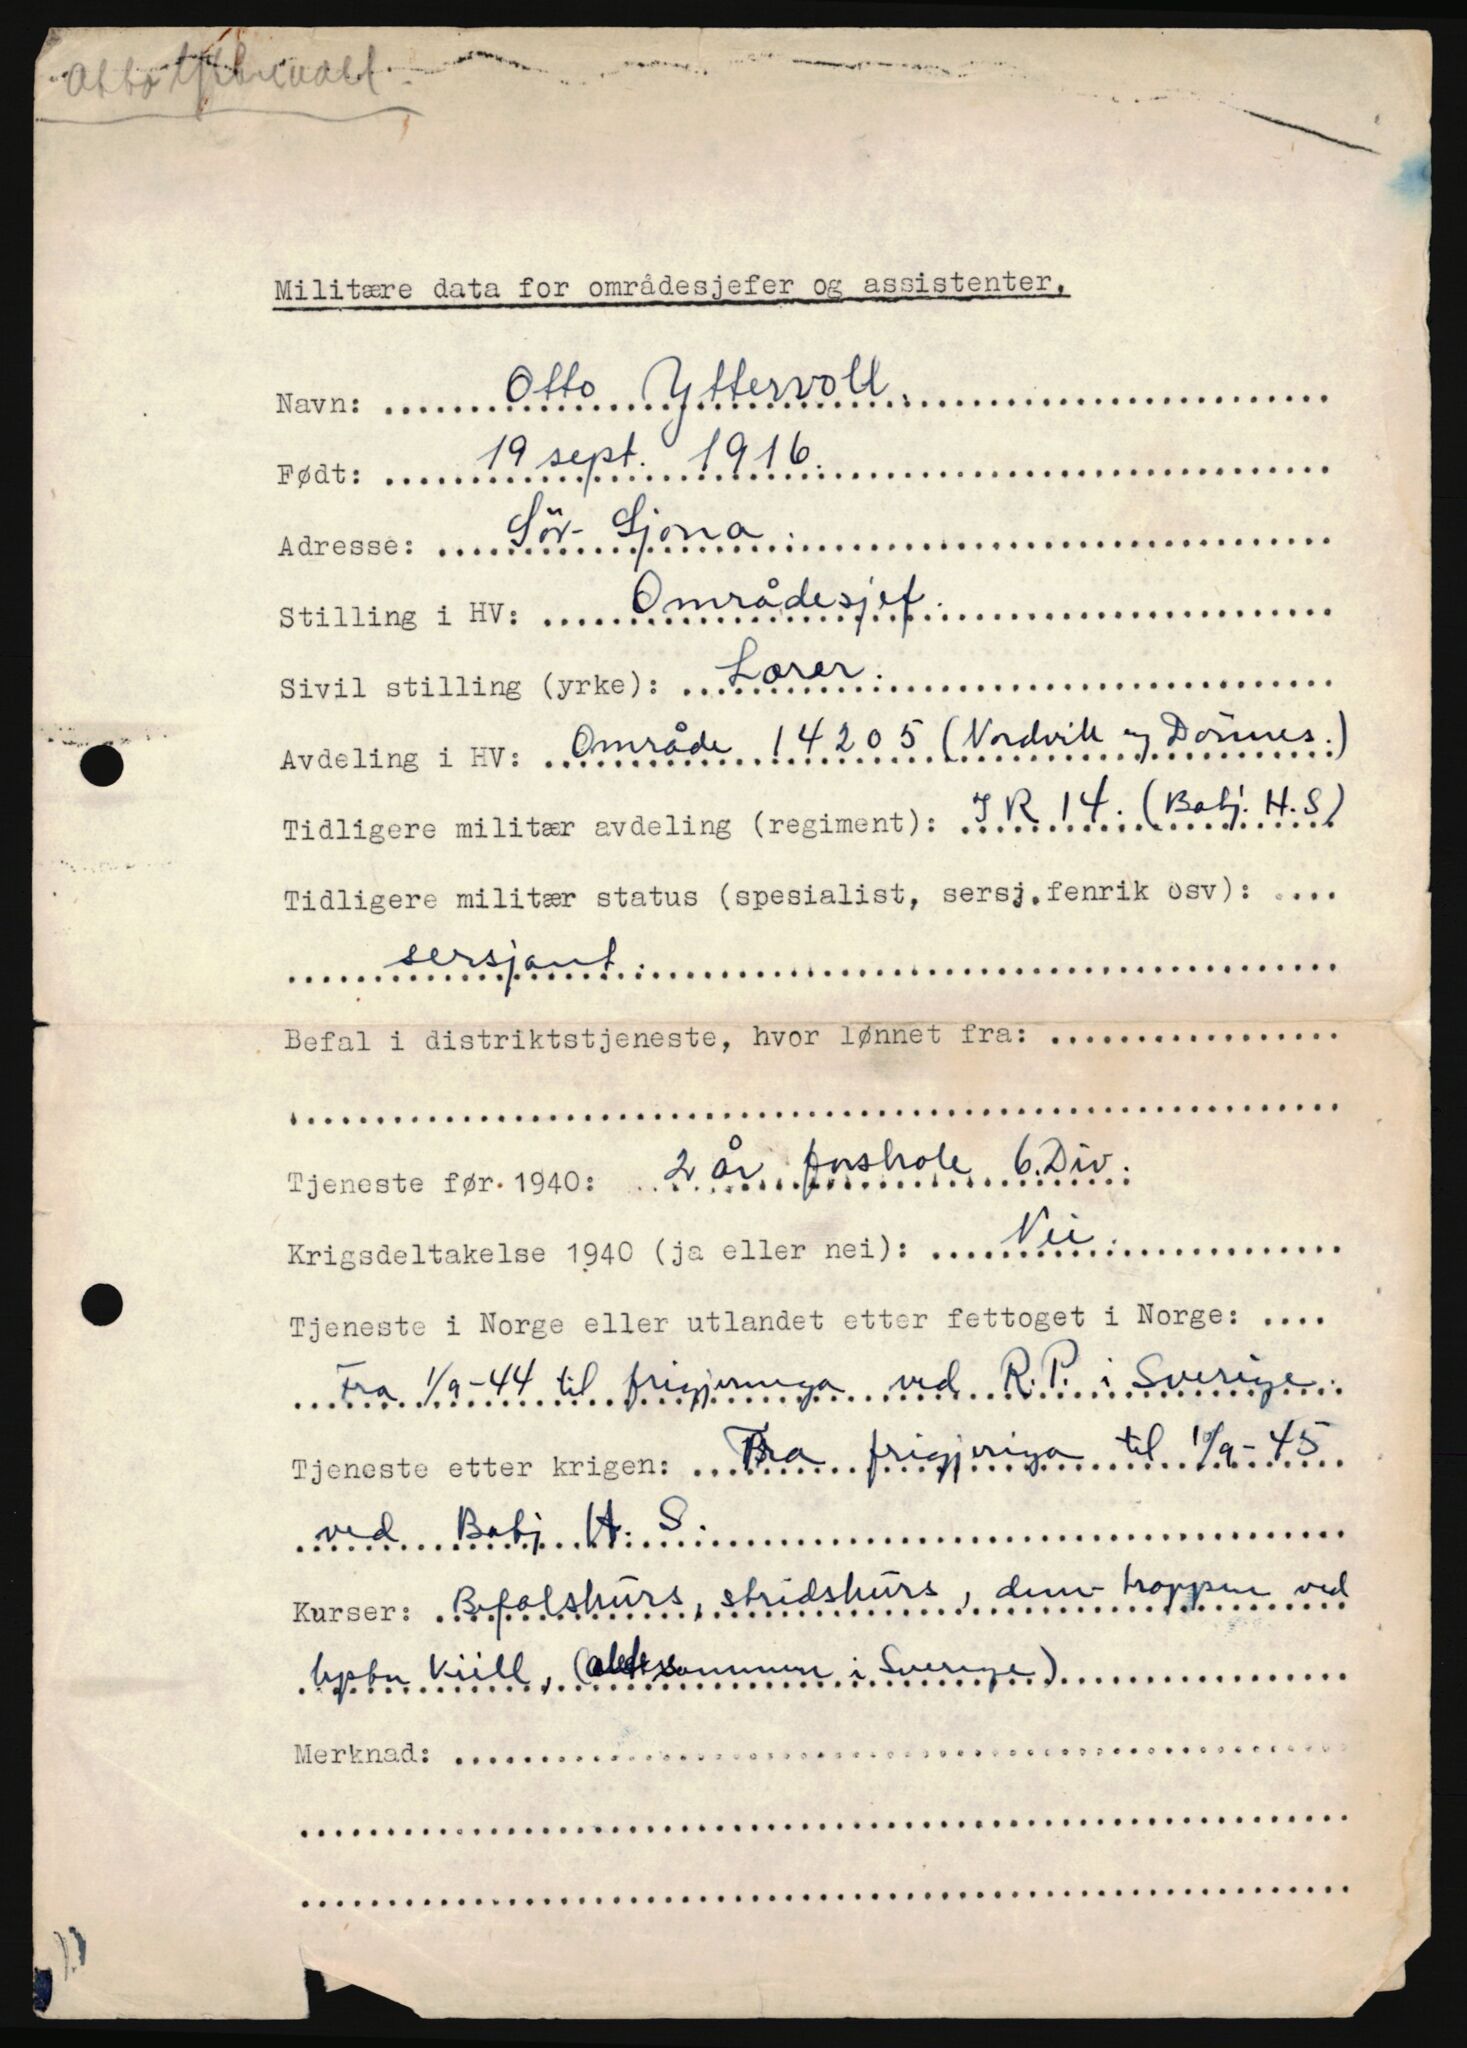 Otto Yttervoll
Militære data for områdesjefer og assistenter.
Navn: Otto Yttervoll.
Født: 19 sept. 1916.
Adresse: Sör-Sjona.
Stilling i HV: Områdesjef.
Sivil stilling (yrke): Lærer.
Avdeling i HV: Område 14205 (Nordvik og Dönnes.)
Tidligere militær avdeling (regiment): IR 14. (Batj. H.S)
Tidligere militær status (spesialist, sersj.fenrik osv): ....
sersjant.
Befal i distriktstjeneste, hvor lønnet fra:
Tjeneste før 1940: 2 år forskole 6. Div.
Krigsdeltakelse 1940 (ja eller nei): Nei.
Tjeneste i Norge eller utlandet etter fettoget i Norge: ....
Fra 1/9-44 til frigjeringa ved R.P. i Sverige.
Tjeneste etter krigen: Fra frigjeringa til 10/9-45
ved Batj H. S.
Kurser: Befalskurs, stridskurs, dem-troppen ved
(alt sammen i Sverige)
Merknad: